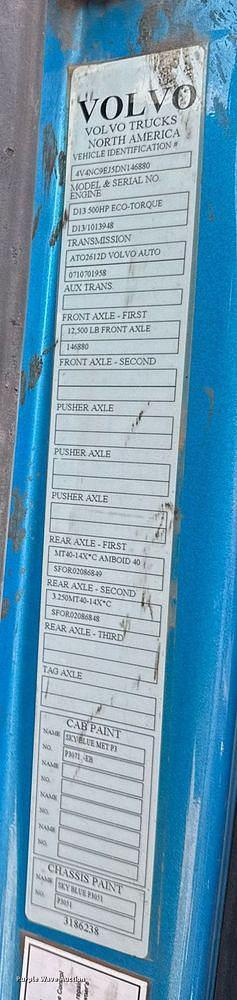 VOLVO
VOLVO TRUCKS
NORTH AMERICA
VEHICLE IDENTIFICATION #
4V4NC9EJ5DN146880
MODEL & SERIAL NO.
ENGINE
D13 500HP ECO-TORQUE
D13/1013948
TRANSMISSION
ATO2612D VOLVO AUTO
0710701958
AUX TRANS.
FRONT AXLE - FIRST
12,500 LB FRONT AXLE
146880
FRONT AXLE - SECOND
PUSHER AXLE
PUSHER AXLE
PUSHER AXLE
REAR AXLE - FIRST
MT40-14X*C AMBOID 40
SFOR02086849
REAR AXLE - SECOND
3.250MT40-14X*C
SFOR02086848
REAR AXLE - THIRD
TAG AXLE
CAB PAINT
NAME SKY BLUE MET P3
NO. P3071 -EB
NAME
NO.
NAME
NO.
NAME
NO.
CHASSIS PAINT
NAME SKY BLUE P3051
NO. P3051
3186238
Purple Wave Auction